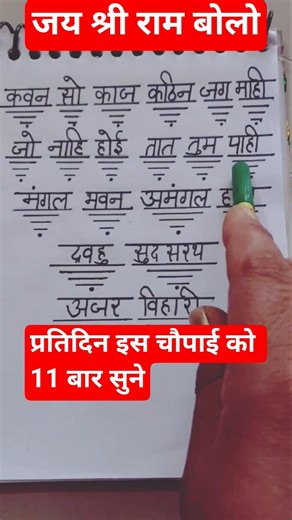 जय श्री राम बोलो
कवन सो काज कठिन जग माही
जो नाहि होई तात तुम पाही
मंगल मवन अमंगल
द्रवहु सुदसरथ
अजर विहारी
प्रतिदिन इस चौपाई को
11 बार सुने